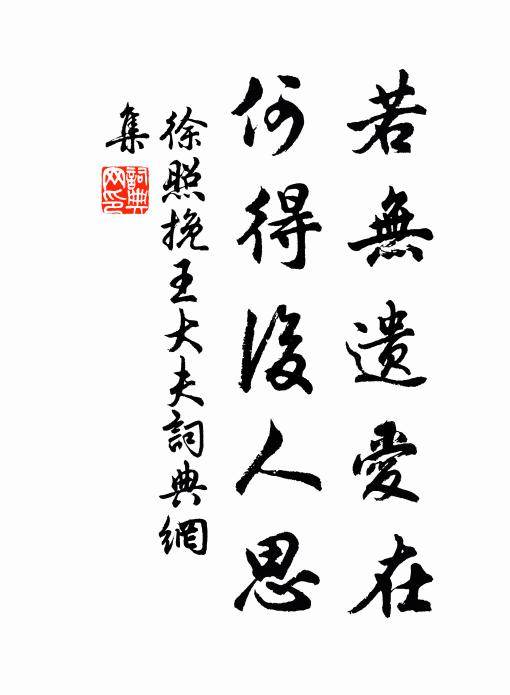 若無遺愛在
何得後人思
徐照挽王大夫詞典網
集
詞典
网印